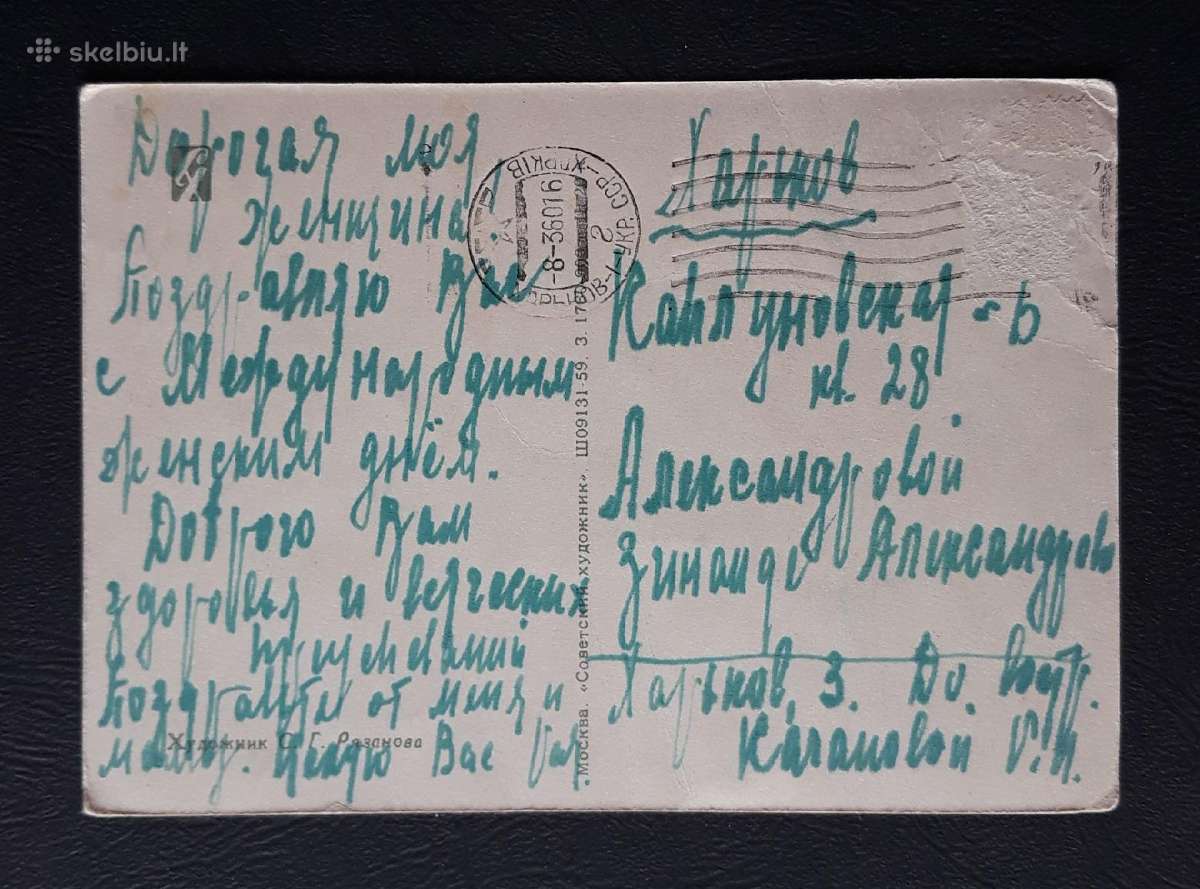 skelbiu.lt
Дорогая моя
женщина
Поздравляю Вас
с Международным
женским днём.
Доброго Вам
здоровья и всяческих
Поздравьте от меня и
Целую Вас
Художник С. Г. Рязанова
Москва. «Советский художник». Ш09131-59. З. 1760
ХАРКІВ УКР. ССР
-8-36016
Харьков
Каплуновская - 6
кв. 28
Александровой
Зинаиде Александровн
Харьков, 3. До востр.
Кагановой Р. И.